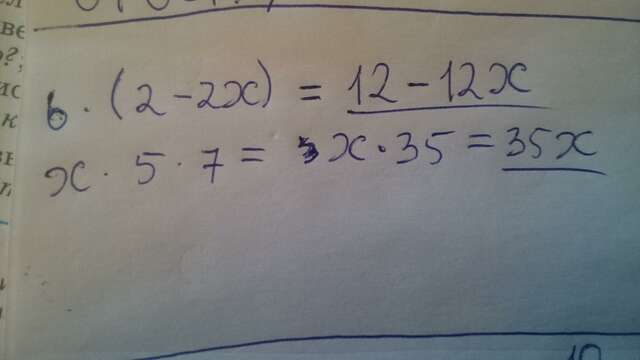 6 · (2 - 2x) = 12 - 12x
x · 5 · 7 = x · 35 = 35x